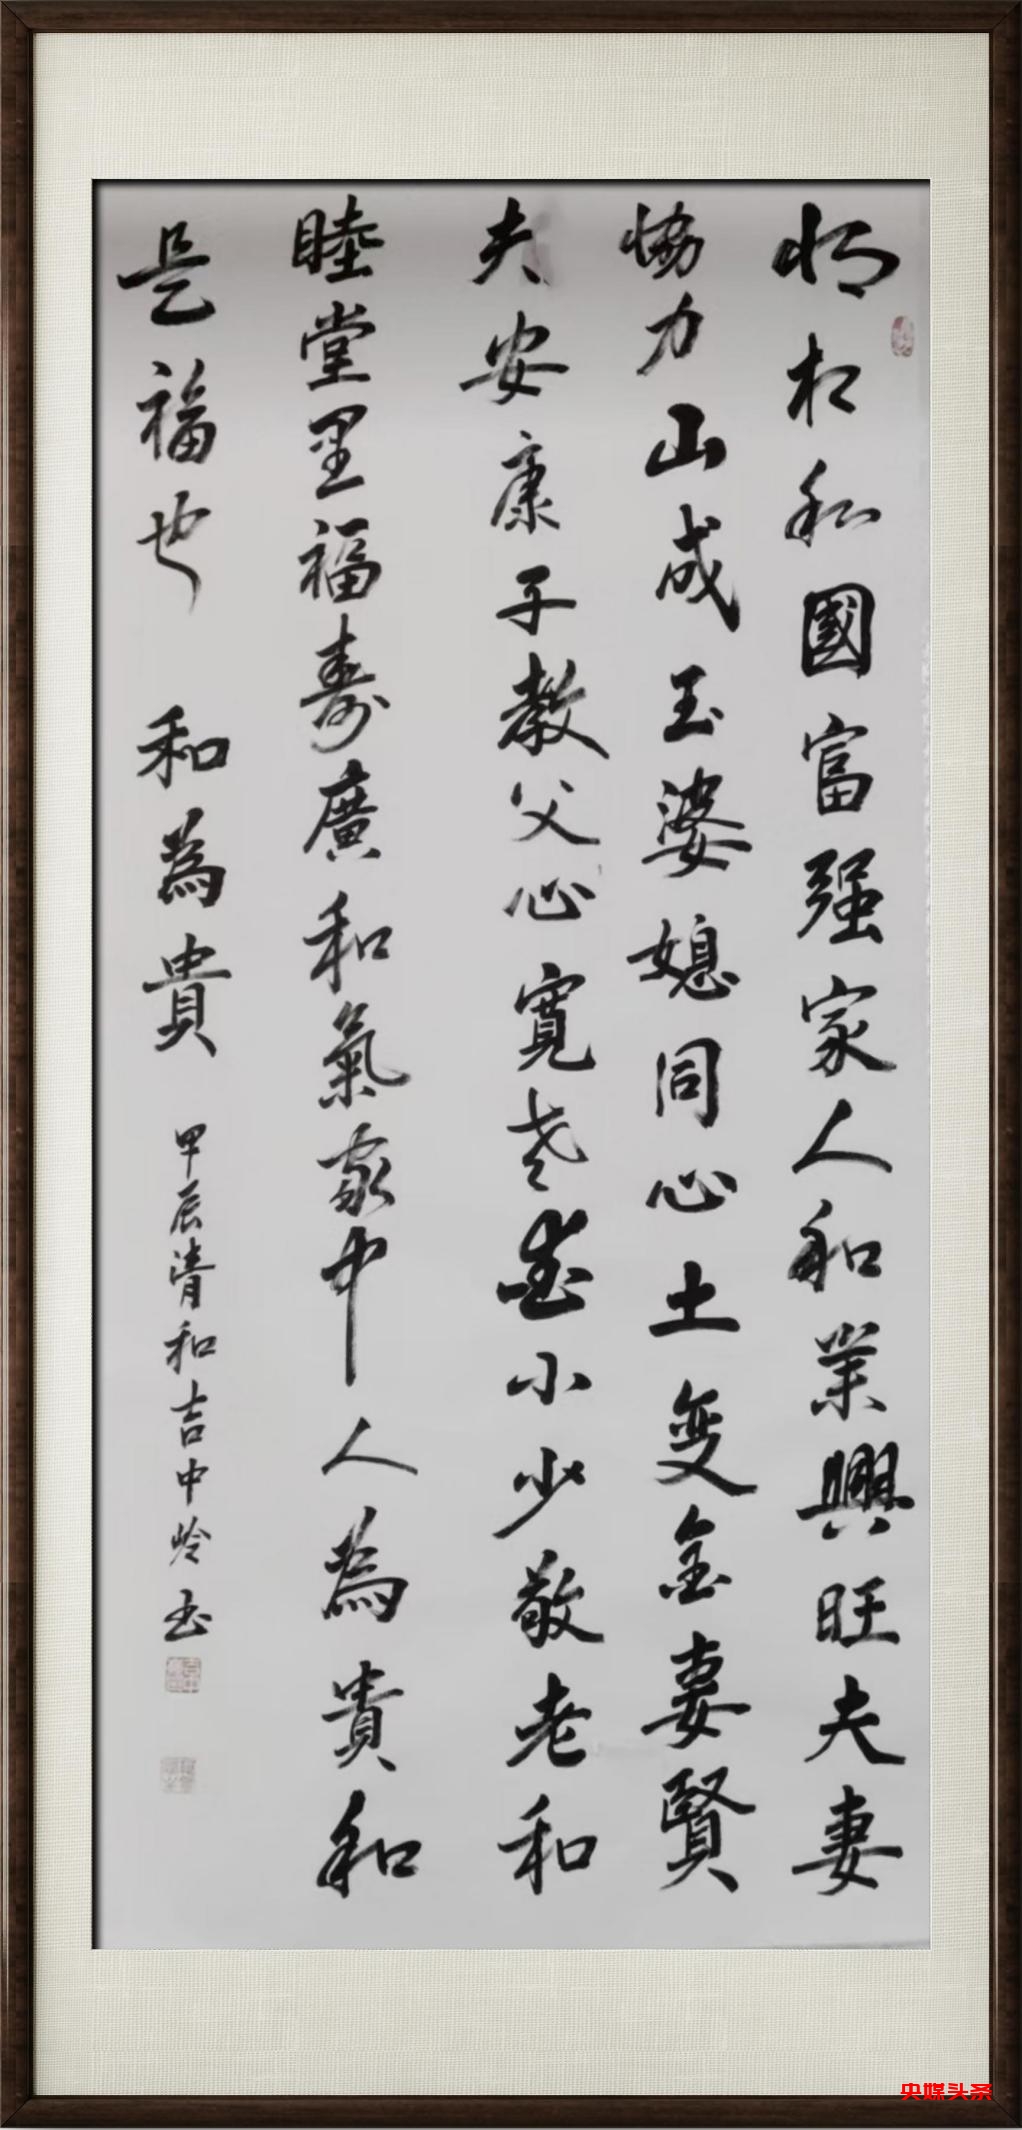 将相和國富强家人和業興旺夫妻
協力山成玉婆媳同心土变金妻賢
夫安康子教父心寬老愛小少敬老和
睦堂里福寿廣和氣家中人為貴和
是福也 和為貴
甲辰清和吉中岭书
央媒头条